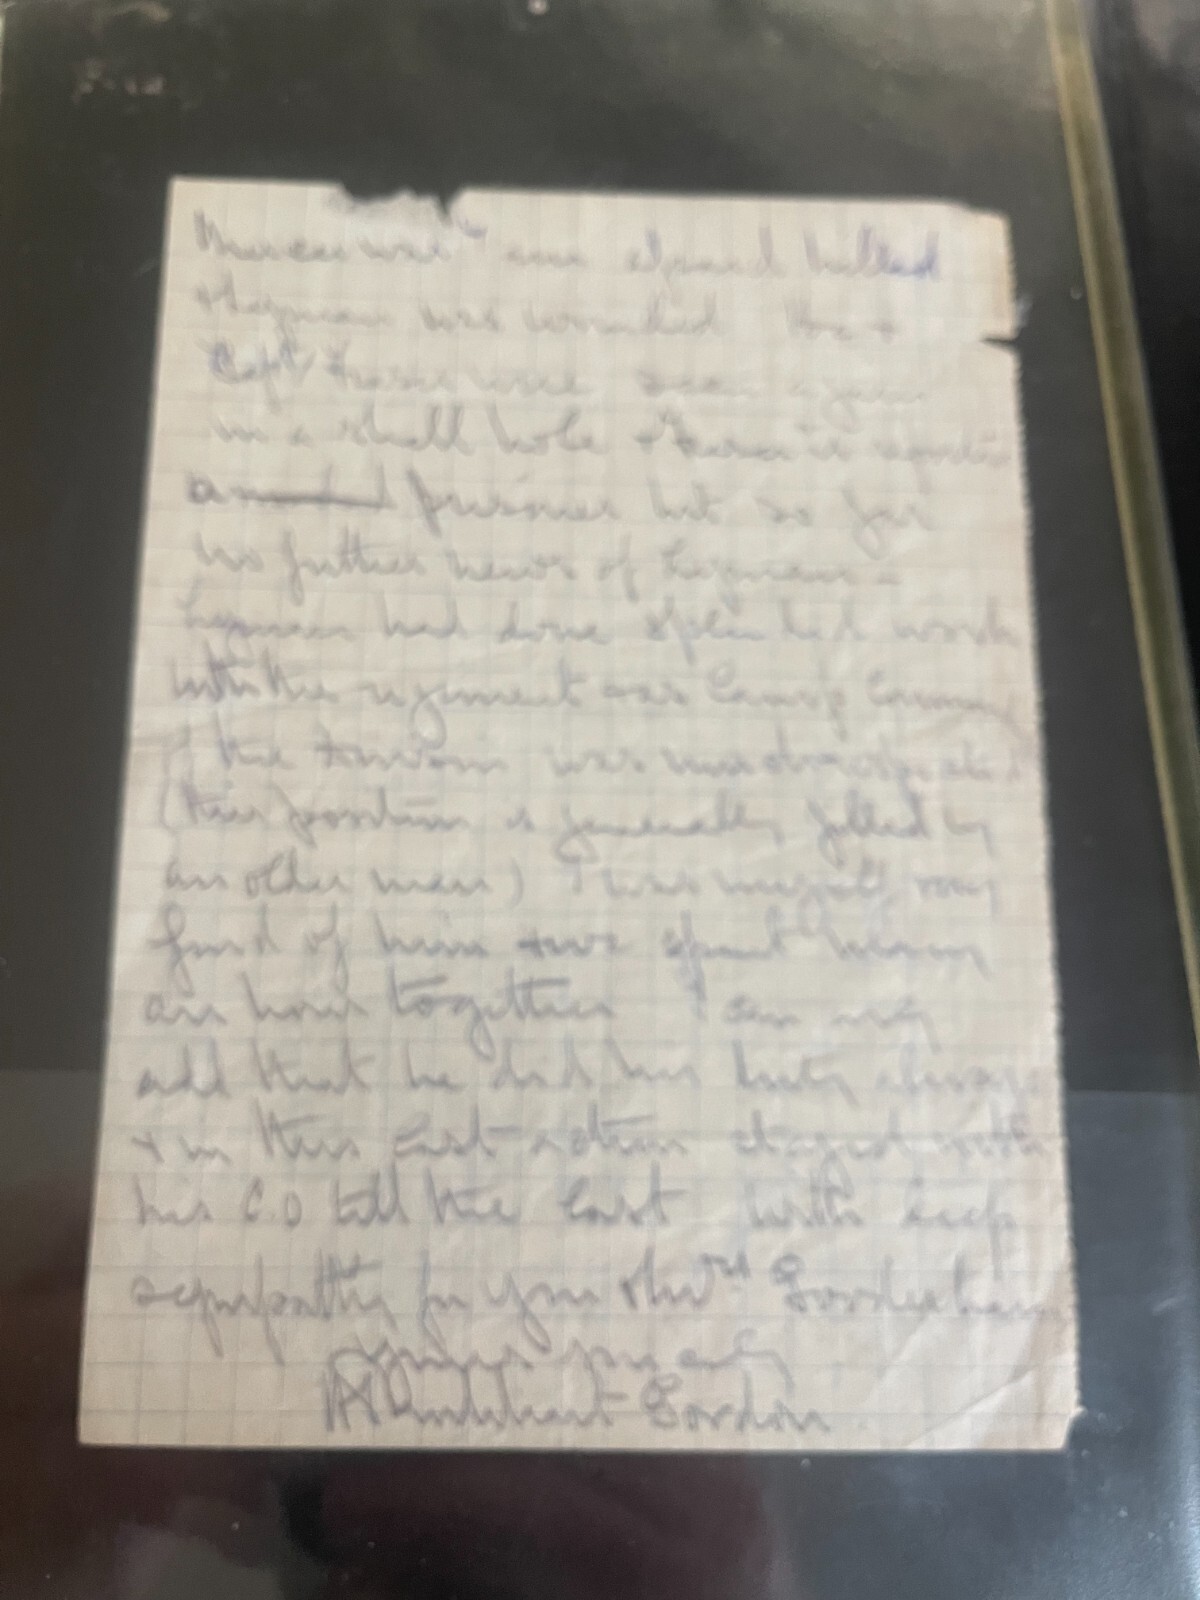 killed
was wounded He +
Capt Fraser were seen again
in a shell hole +
prisoner but so far
no further news of Lyman -
Lyman had done splendid work
with the regiment as Camp
the was
(this position is generally filled by
an older man) I was myself very
fond of him + we spent many
an hour together I can only
add that he did his duty always
+ in this last action stayed with
his C.O till the last with deep
sympathy for you + Mrs Gooderham
yours sincerely
Gordon